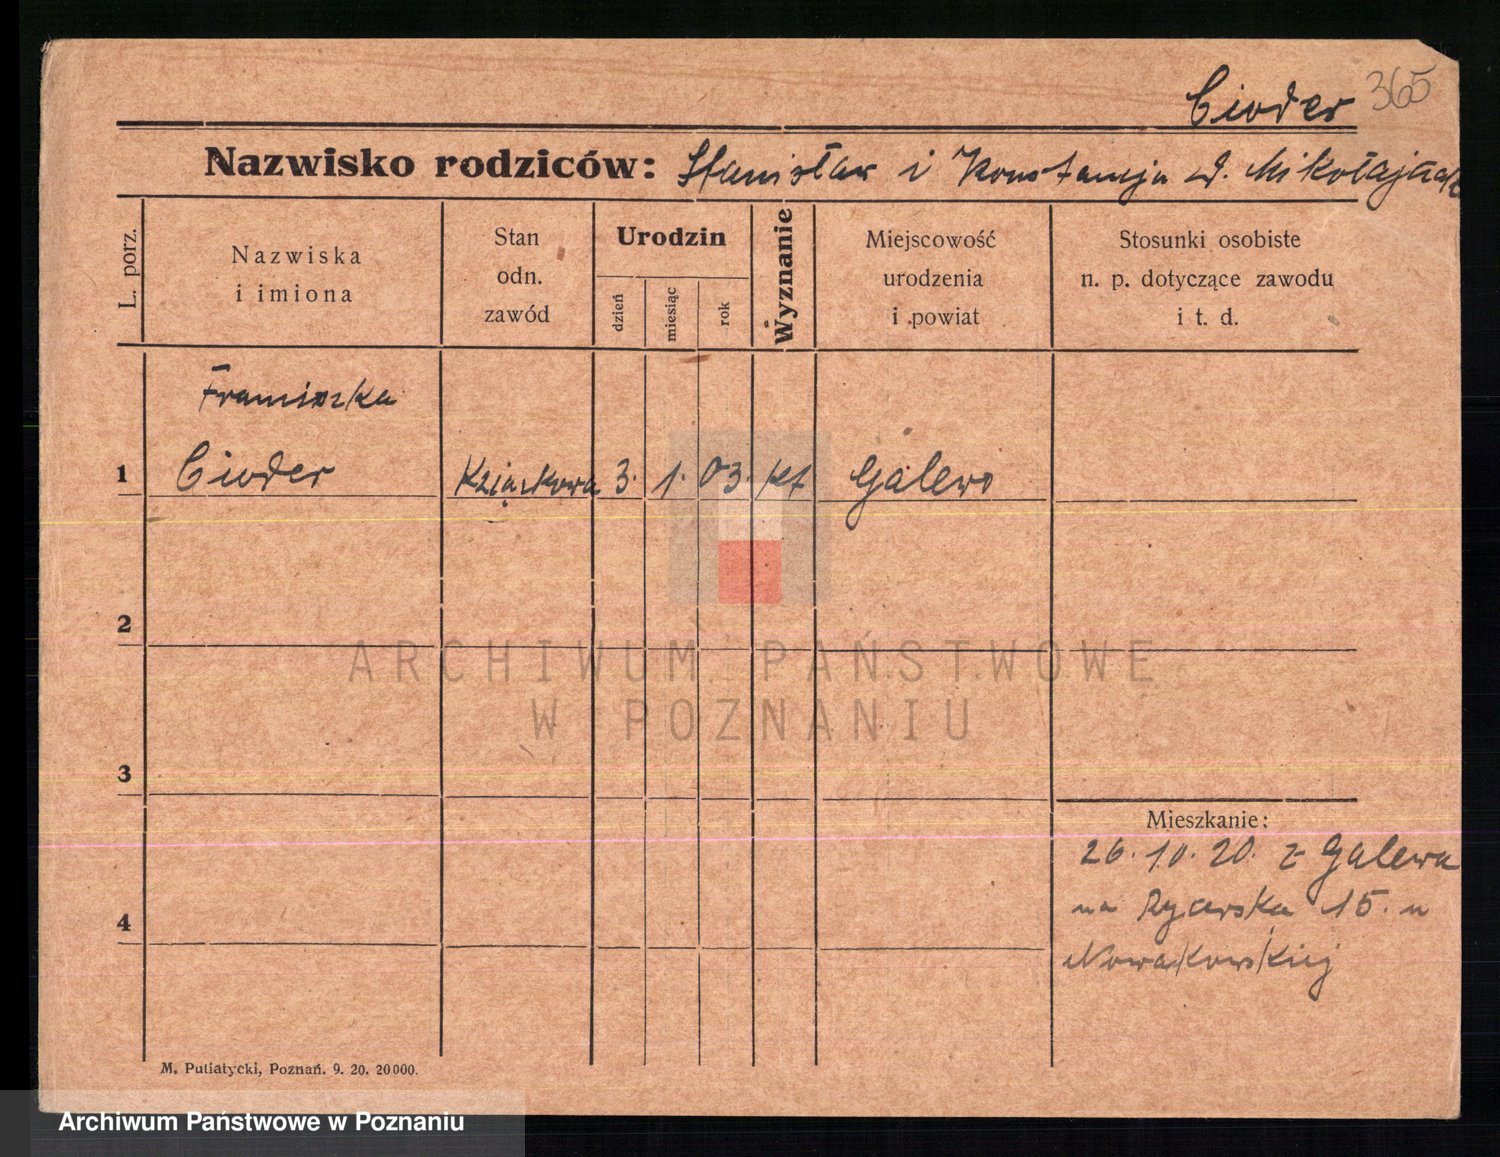 Cioder 365
Nazwisko rodziców: Stanisław i Konstancja d. Mikołajczak
L. porz.
Nazwiska
i imiona
Stan
odn.
zawód
Urodzin
dzień
miesiąc
rok
Wyznanie
Miejscowość
urodzenia
i powiat
Stosunki osobiste
n. p. dotyczące zawodu
i t. d.
Franciszka
1 Cioder 3. 1. 03. kat Galewo
2
ARCHIWUM PAŃSTWOWE
W POZNANIU
3
Mieszkanie:
26. 10. 20. z Galewa
na Rycerska 15. u
4
Nowakowskiej
M. Putiatycki, Poznań. 9. 20. 20000.
Archiwum Państwowe w Poznaniu